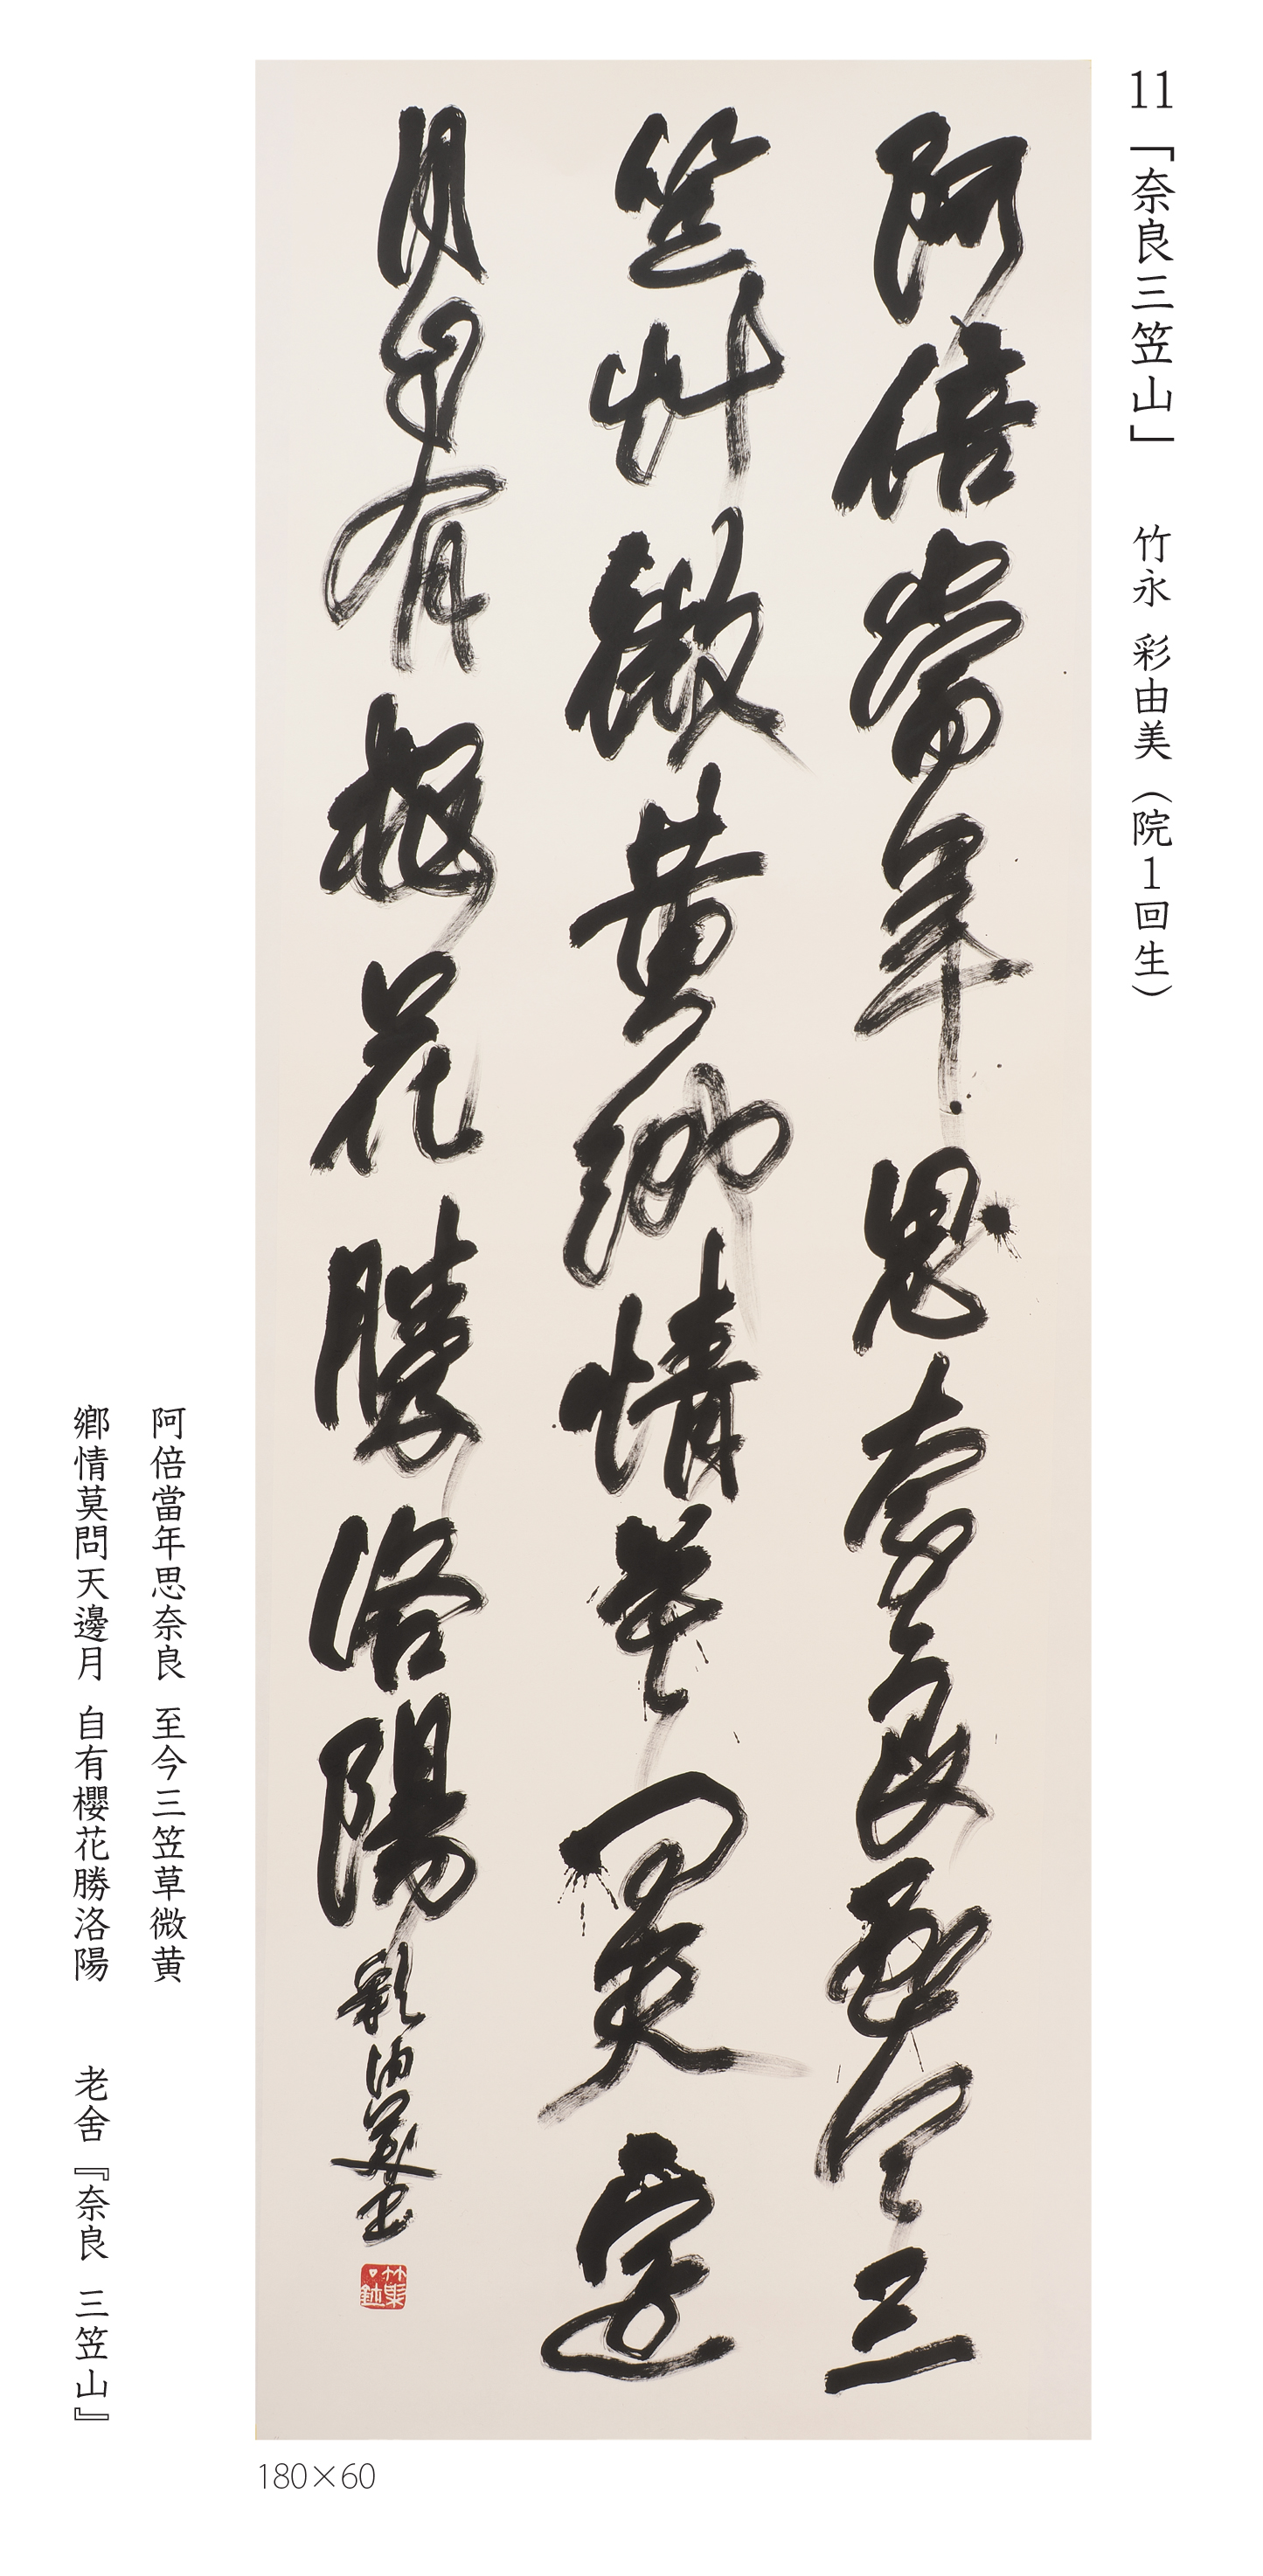 11「奈良三笠山」 竹永 彩由美（院1回生）
阿倍當年思奈良至今三
笠艸微黄鄉情莫問天邊
月自有櫻花勝洛陽 彩由美書
阿倍當年思奈良 至今三笠草微黄
鄉情莫問天邊月 自有櫻花勝洛陽 老舍『奈良 三笠山』
180×60